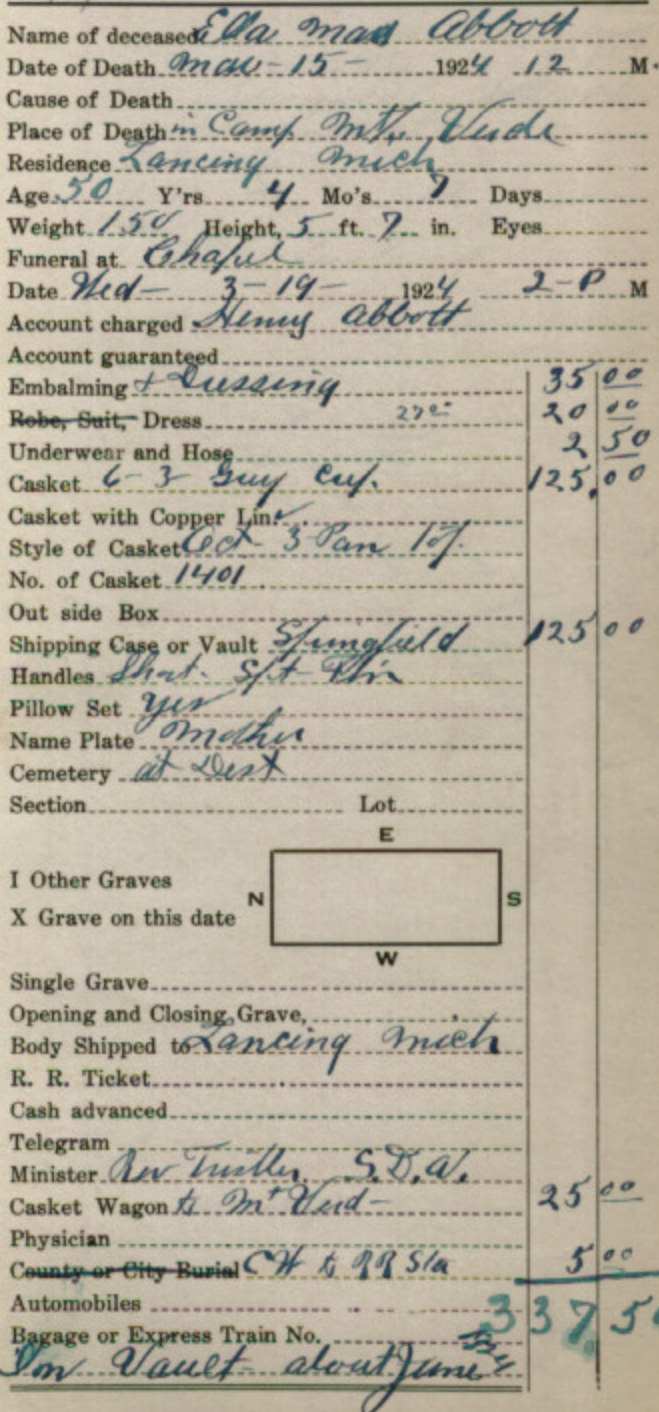 Name of deceased Ella Abbott
Date of Death Mar - 15 - 1924 12 M.
Cause of Death
Place of Death in Camp Mt. Verde
Residence Lancing Mich
Age 50 Y'rs 4 Mo's 7 Days
Weight 150 Height, 5 ft. 7 in. Eyes
Funeral at Chapel
Date Wed - 3-19- 1924 2-P M
Account charged Henry Abbott
Account guaranteed
Embalming & Dressing 35 00
Robe, Suit, Dress 20 00
Underwear and Hose 2 50
Casket 6-3 Grey 125.00
Casket with Copper Lin.
Style of Casket Oct 3 Pan
No. of Casket 1401
Out side Box
Shipping Case or Vault Springfield 125 00
Handles Short
Pillow Set yes
Name Plate Mother
Cemetery at Dest
Section Lot
E
I Other Graves
N S
X Grave on this date
W
Single Grave
Opening and Closing Grave,
Body Shipped to Lancing Mich
R. R. Ticket
Cash advanced
Telegram
Minister Rev S.D.A.
Casket Wagon to Mt Verd - 25 00
Physician
County or City Burial C W to RR Sta 5 00
Automobiles 337.50
Bagage or Express Train No.
In Vault - about June